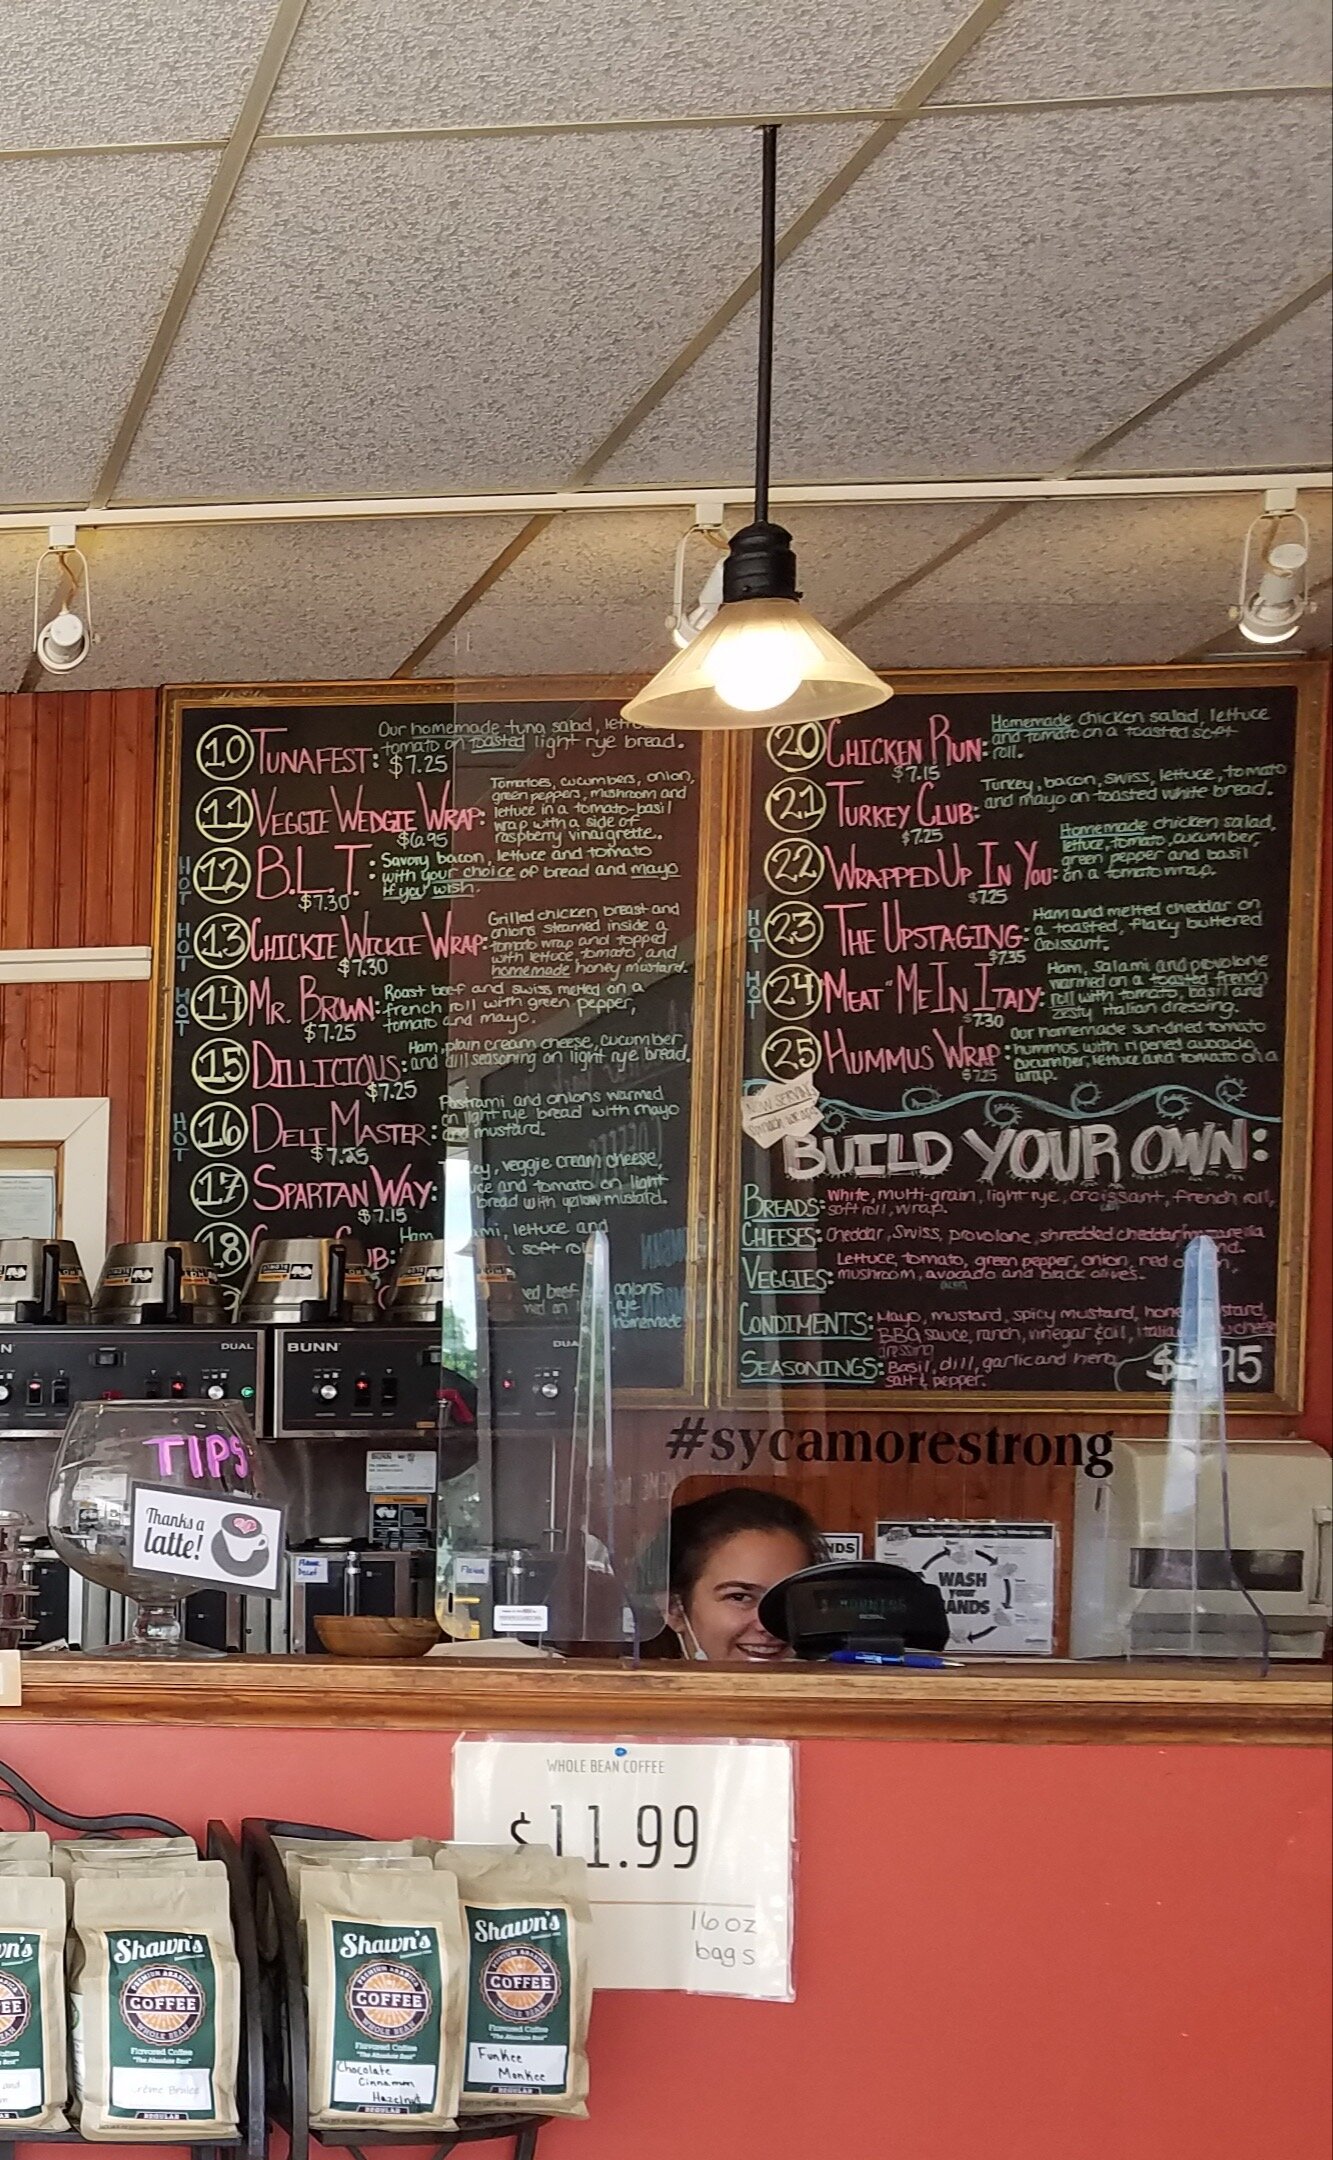 10 TUNAFEST: $7.25
Our homemade tuna salad,
tomato on toasted light rye bread.
11 VEGGIE WEDGIE WRAP: $6.95
Tomatoes, cucumbers, onion,
green peppers, mushroom and
lettuce in a tomato-basil
wrap with a side of
raspberry vinaigrette.
HOT
12 B.L.T.: $7.30
Savory bacon, lettuce and tomato
with your choice of bread and mayo
if you wish.
HOT
13 CHICKIE WICKIE WRAP: $7.30
Grilled chicken breast and
onions steamed inside a
tomato wrap and topped
with lettuce, tomato, and
homemade honey mustard.
HOT
14 MR. BROWN: $7.25
Roast beef and swiss melted on a
french roll with green pepper,
tomato and mayo.
15 DILLICIOUS: $7.25
Ham, plain cream cheese, cucumber
and dill seasoning on light rye bread.
HOT
16 DELI MASTER: $7.25
Pastrami and onions warmed
on light rye bread with mayo
and mustard.
17 SPARTAN WAY: $7.15
veggie cream cheese,
and tomato on light
bread with yellow mustard.
18
Ham
lettuce and
soft
beef
onions
rye
homemade
20 CHICKEN RUN: $7.15
Homemade chicken salad, lettuce
and tomato on a toasted soft
roll.
21 TURKEY CLUB: $7.25
Turkey, bacon, swiss, lettuce, tomato
and mayo on toasted white bread.
22 WRAPPED UP IN YOU: $7.25
Homemade chicken salad,
lettuce, tomato, cucumber,
green pepper and basil
on a tomato wrap.
HOT
23 THE UPSTAGING: $7.35
Ham and melted cheddar on
a toasted, flaky buttered
croissant.
HOT
24 "MEAT" ME IN ITALY: $7.30
Ham, salami and provolone
warmed on a toasted french
roll with tomato, basil and
zesty Italian dressing.
25 HUMMUS WRAP: $7.25
Our homemade sun-dried tomato
hummus with ripened avocado,
cucumber, lettuce and tomato on a
wrap.
NOW SERVING
SPINACH WRAPS
BUILD YOUR OWN:
BREADS: White, multi-grain, light rye, croissant, french roll,
soft roll, wrap.
CHEESES: Cheddar, Swiss, provolone, shredded cheddar
VEGGIES: Lettuce, tomato, green pepper, onion, red onion,
mushroom, avocado and black olives.
CONDIMENTS: Mayo, mustard, spicy mustard, honey mustard,
BBQ sauce, ranch, vinegar & oil, Italian
dressing
SEASONINGS: Basil, dill, garlic and herb,
salt & pepper.
95
#sycamorestrong
BUNN
DUAL
BUNN
TIPS
Thanks a
latte!
Flavor
Decaf
Flavor
WASH
YOUR
HANDS
ROYAL
WHOLE BEAN COFFEE
$11.99
16 oz
bags
Shawn's
PREMIUM ARABICA
COFFEE
WHOLE BEAN
Flavored Coffee
"The Absolute Best"
Crème Brulee
REGULAR
Shawn's
PREMIUM ARABICA
COFFEE
WHOLE BEAN
Flavored Coffee
"The Absolute Best"
Chocolate
Cinnamon
Hazelnut
REGULAR
Shawn's
PREMIUM ARABICA
COFFEE
WHOLE BEAN
Flavored Coffee
"The Absolute Best"
Funkee
Monkee
REGULAR